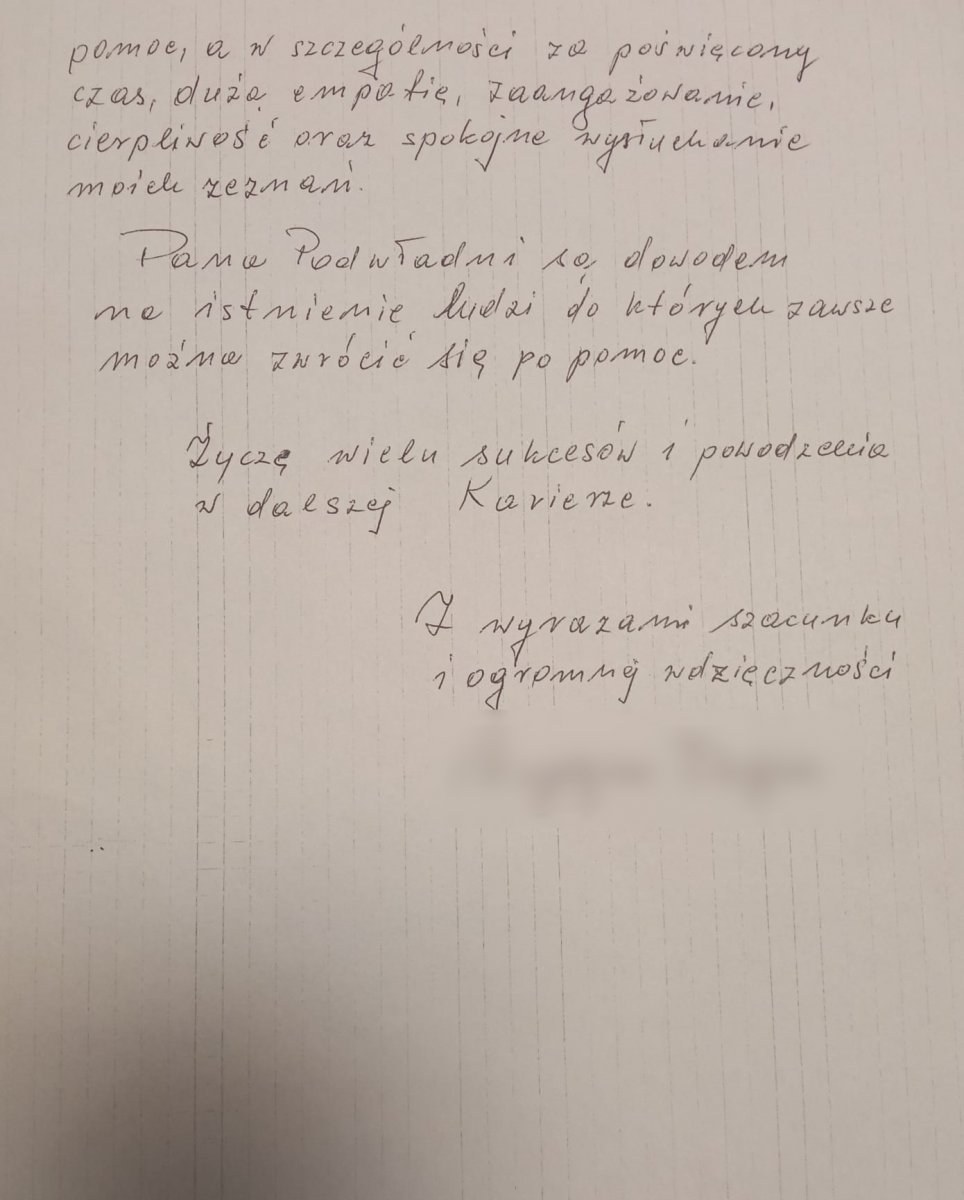 pomoc, a w szczególności za poświęcony
czas, dużą empatię, zaangażowanie,
cierpliwość oraz spokojne wysłuchanie
moich zeznań.
Pana Podwładni są dowodem
na istnienie ludzi do których zawsze
można zwrócić się po pomoc.
Życzę wielu sukcesów i powodzenia
w dalszej Karierze.
Z wyrazami szacunku
i ogromnej wdzięczności